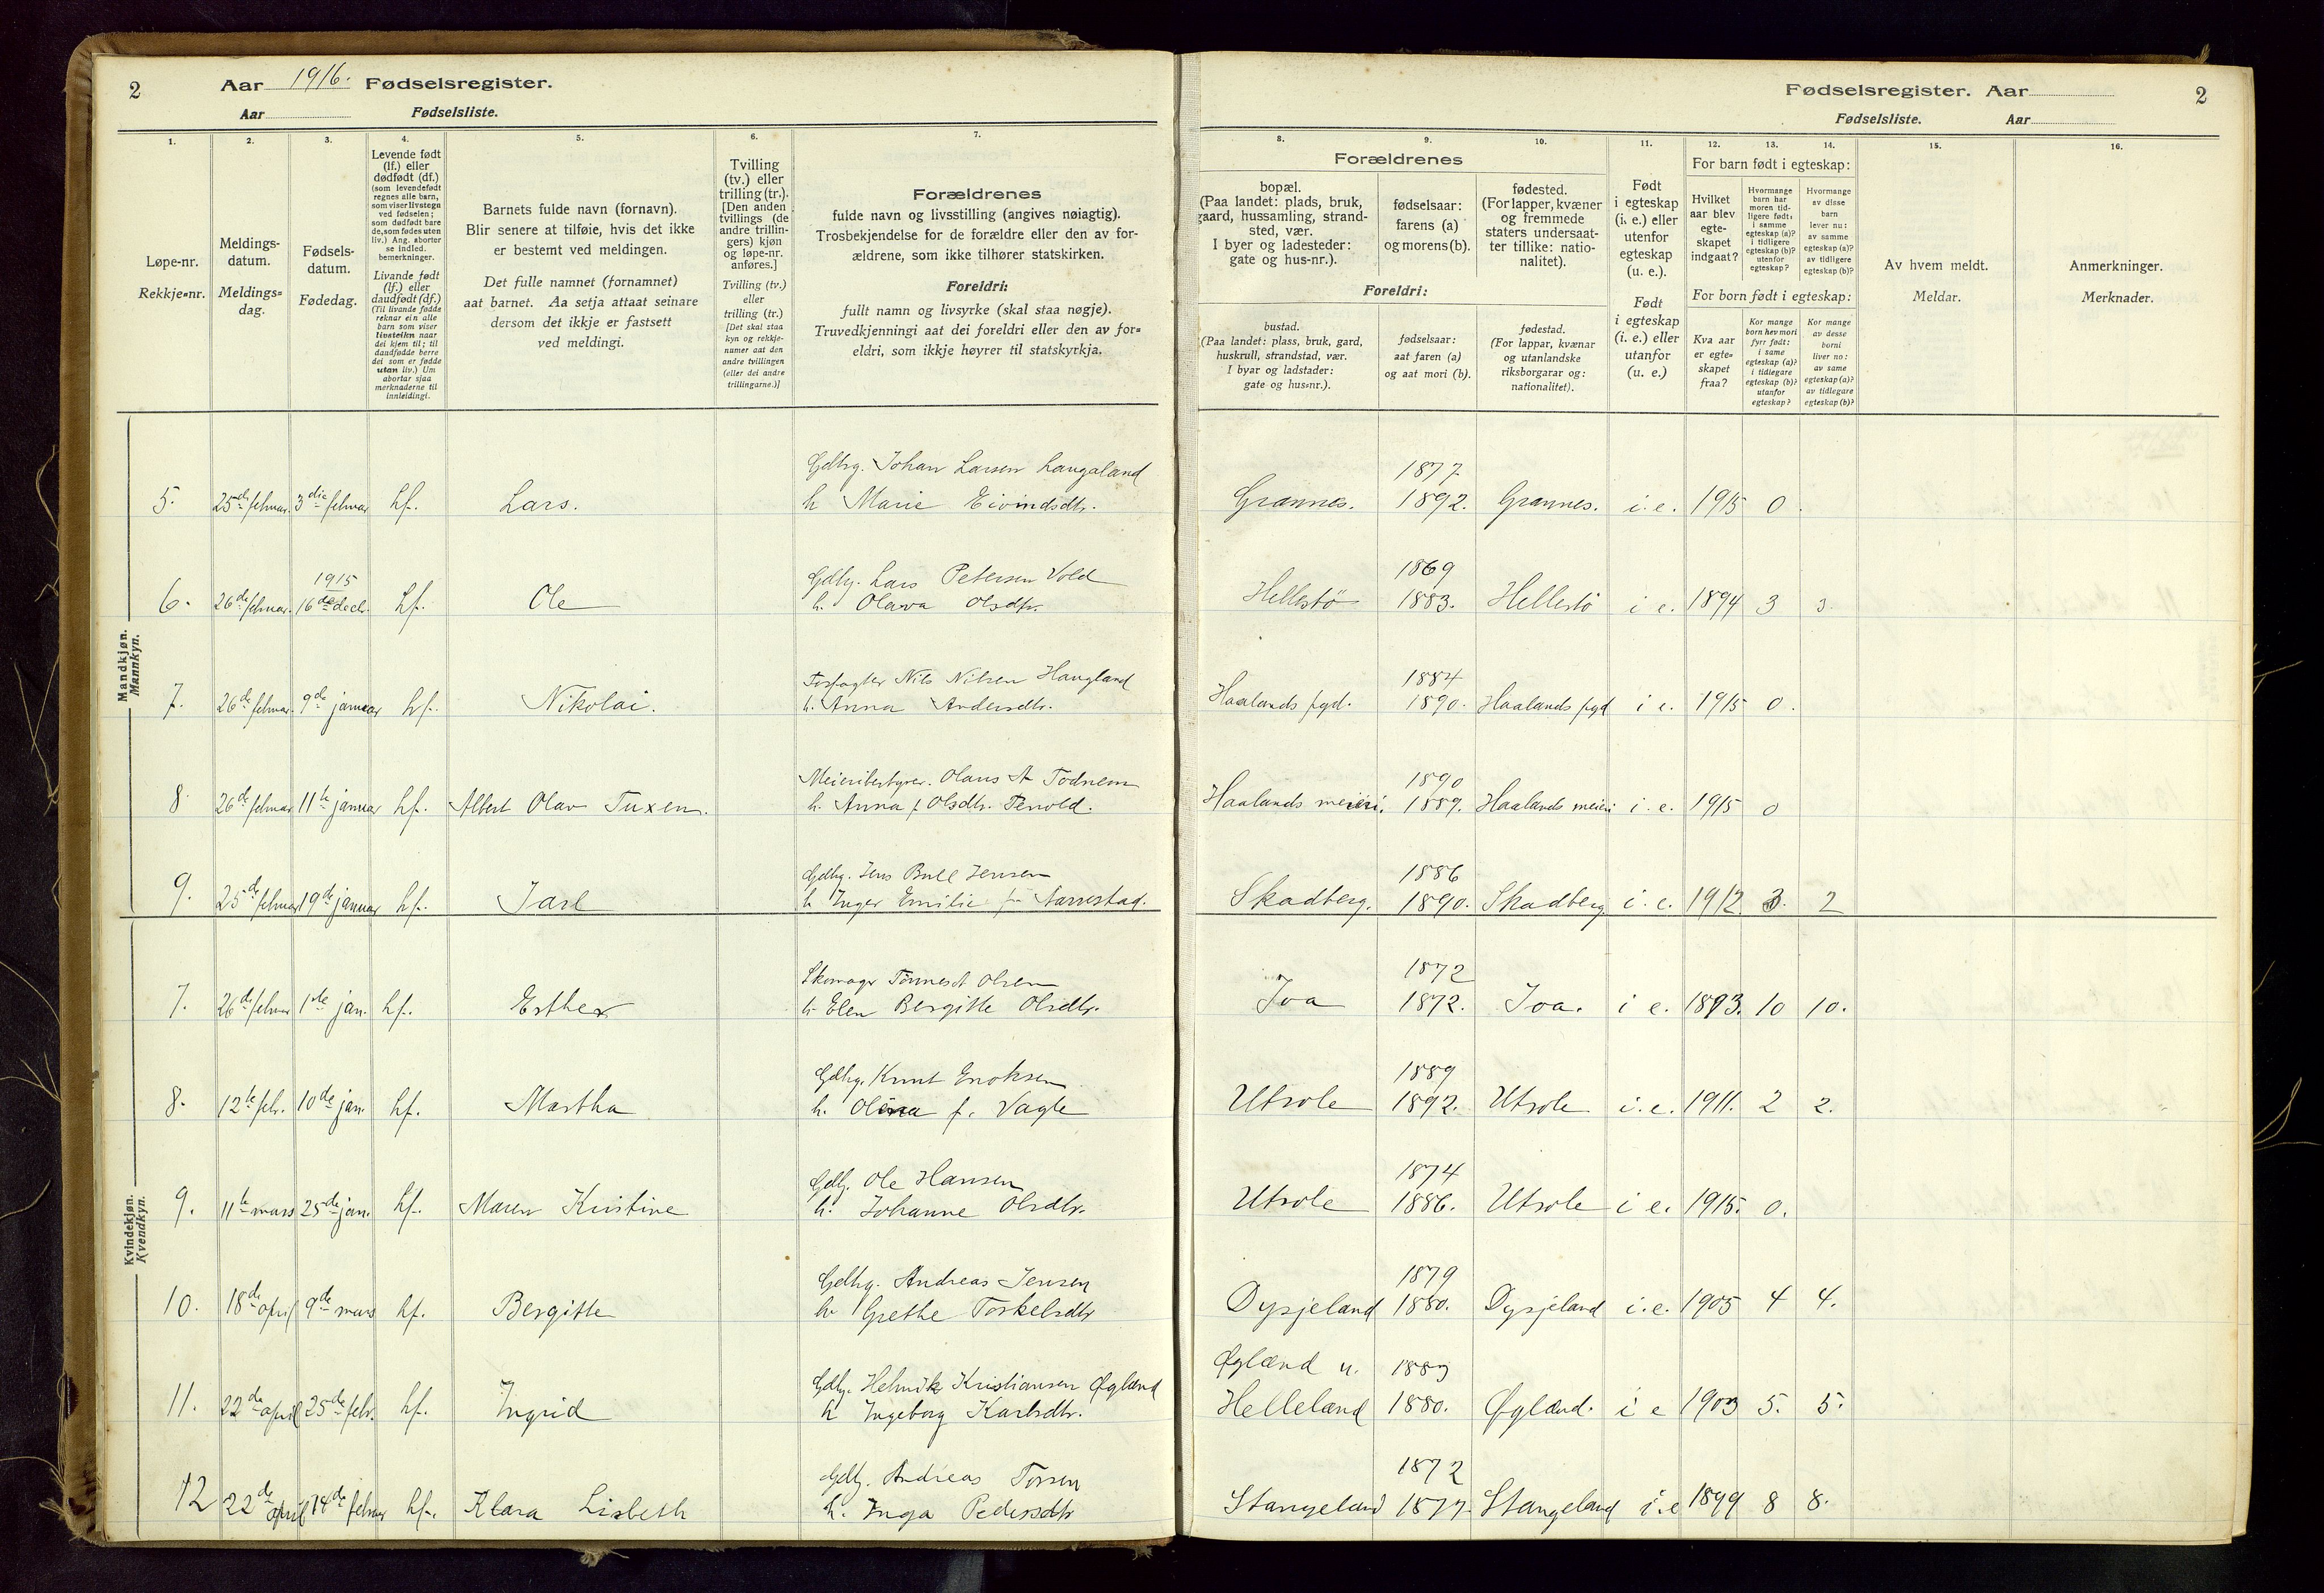 2
Aar 1916. Fødselsregister.
Aar Fødselsliste.
Fødselsregister. Aar
2
Fødselsliste. Aar
1. 2. 3. 4. 5. 6. 7. 8. 9. 10. 11. 12. 13. 14. 15. 16.
Løpe-nr.
Rekkje-nr.
Meldings-
datum.
Meldings-
dag.
Fødsels-
datum.
Fødedag.
Levende født
(lf.) eller
dødfødt (df.)
(som levendefødt
regnes alle barn,
som viser livstegn
ved fødselen;
som dødfødt bare
de, som fødes uten
liv.) Ang. aborter
se indled.
bemerkninger.
Livande født
(lf.) eller
daudfødt (df.)
(Til livande fødde
reknar ein alle
barn som viser
livsteikn naar
dei kjem til; til
daudfødde berre
dei som er fødde
utan liv.) Um
abortar sjaa
merknaderne til
innleidingi.
Barnets fulde navn (fornavn).
Blir senere at tilføie, hvis det ikke
er bestemt ved meldingen.
Det fulle namnet (fornamnet)
aat barnet. Aa setja attaat seinare
dersom det ikkje er fastsett
ved meldingi.
Tvilling
(tv.) eller
trilling (tr.).
[Den anden
tvillings (de
andre trillin-
gers) kjøn
og løpe-nr.
anføres.]
Tvilling (tv.)
eller
trilling (tr.)
[Det skal staa
kyn og rekkje-
numer aat den
andre tvillingen
(eller dei andre
trillingarne.)]
Forældrenes
fulde navn og livsstilling (angives nøiagtig).
Trosbekjendelse for de forældre eller den av for-
ældrene, som ikke tilhører statskirken.
Foreldri:
fullt namn og livsyrke (skal staa nøgje).
Truvedkjenningi aat dei foreldri eller den av for-
eldri, som ikkje høyrer til statskyrkja.
Forældrenes
bopæl.
(Paa landet: plads, bruk,
gaard, hussamling, strand-
sted, vær.
I byer og ladesteder:
gate og hus-nr.).
fødselsaar:
farens (a)
og morens (b).
fødested.
(For lapper, kvæner
og fremmede
staters undersaat-
ter tillike: natio-
nalitet).
Foreldri:
bustad.
(Paa landet: plass, bruk, gard,
huskrull, strandstad, vær.
I byar og ladstader:
gate og hus-nr.).
fødselsaar:
aat faren (a)
og aat mori (b).
fødestad.
(For lappar, kvænar
og utanlandske
riksborgarar og:
nationalitet).
Født
i egteskap
(i. e.) eller
utenfor
egteskap
(u. e.).
Født
i egteskap
(i. e.) eller
utanfor
(u. e.)
For barn født i egteskap:
Hvilket
aar blev
egte-
skapet
indgaat?
Hvormange
barn har
moren tid-
ligere født:
i samme
egteskap (a)?
i tidligere
egteskap (b)?
utenfor
egteskap?
Hvormange
av disse
barn
lever nu:
av samme
egteskap (a)?
av tidligere
egteskap (b)?
For born født i egteskap:
Kva aar
er egte-
skapet
fraa?
Kor mange
born hev mori
fyrr født:
i same
egteskap (a)?
i tidlegare
egteskap (b)?
utanfor
egteskap?
Kor mange
av desse
borni
liver no:
av same
egteskap (a)?
av tidlegare
egteskap (b)?
Av hvem meldt.
Meldar.
Anmerkninger.
Merknader.
Mandkjøn.
Mannkyn.
Gdbrg. Johan Larsen Laugaland 1877.
5. 25de februar. 3die februar Lf. Lars. h Marie Eivindsdtr. Grannes. 1892. Grannes. i. e. 1915 0.
1915 Gdbg. Lars Petersen Vold 1869
6. 26de februar. 16de dec. Lf. Ole h. Olava Olsdtr. Hellestö 1883. Hellestö i e. 1894 3 3.
Nils Nilsen Haugland 1884
7. 26de februar 9de januar Lf. Nikolai. h. Anna Andersdtr. Haalands pgd. 1890. Haalands pgd i e. 1915 0.
Meieribestyrer. Olaus A Todnem 1890
8 26de februar 11te januar Lf. Albert Olav Tuxen. h. Anna f. Olsdtr. Tenold. Haalands meieri. 1889. Haalands meieri i. e. 1915 0
Gdbg. Jens Bull Jensen 1886
9. 25de februar 19de januar Lf. Jarl h. Inger Emilie f. Aarrestad. Skadberg. 1890. Skadberg. i. e. 1912. 3. 2
Kvindekjøn.
Kvendkyn.
Skomager Tönnes Olsen 1872
7. 26de februar 1ste jan. Lf. Esther h. Elen Bergitte Olsdtr. Joa 1872. Joa. i e. 1893. 10 10.
Gdbrg. Knut Enoksen 1889
8. 12te febr. 10de jan. Lf. Martha h. Olina f. Vagle Utsole 1892. Utsole i. e. 1911. 2 2.
Gdbg. Ole Hansen 1874
9. 11te mars 25de jan. Lf. Maren Kristine h. Johanne Olsdtr. Utsole 1886. Utsole i e. 1915. 0.
Gdbrg. Andreas Jensen 1879
10. 18de april 9de mars Lf. Bergitte h. Grethe Torkelsdtr Dysjeland 1880. Dysjeland i. e. 1905 4 4.
Gdbg. Helmik Kristiansen Øgland Øgland u. 1883
11. 22de april 25de febr. Lf. Ingrid h Ingeborg Karlsdtr. Helleland 1880. Øgland. i e 1903 5. 5.
Gdbg. Andreas Torsen 1872
12 22de april 14de februar Lf. Klara Lisbeth h. Inga Pedersdtr Stangeland 1877. Stangeland i. e 1899 8 8.